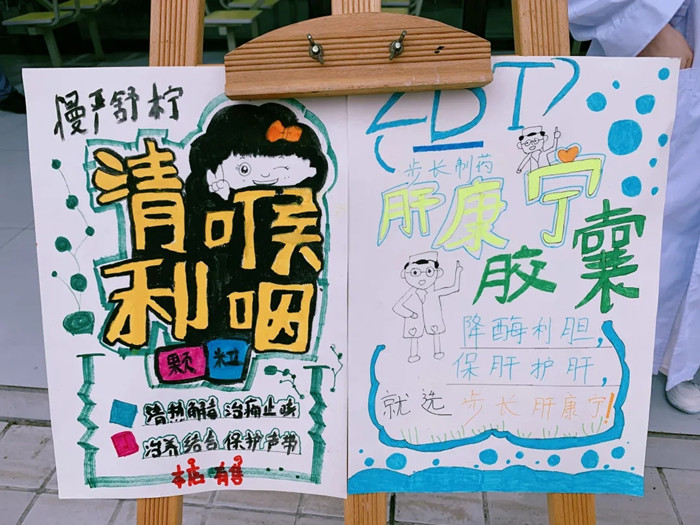 慢严舒柠
清喉
利咽
颗粒
清热解毒 治痛止咳
治养结合 保护声带
本店 有售
步长制药
肝康宁
胶囊
降酶利胆,
保肝护肝,
就选 步长肝康宁!